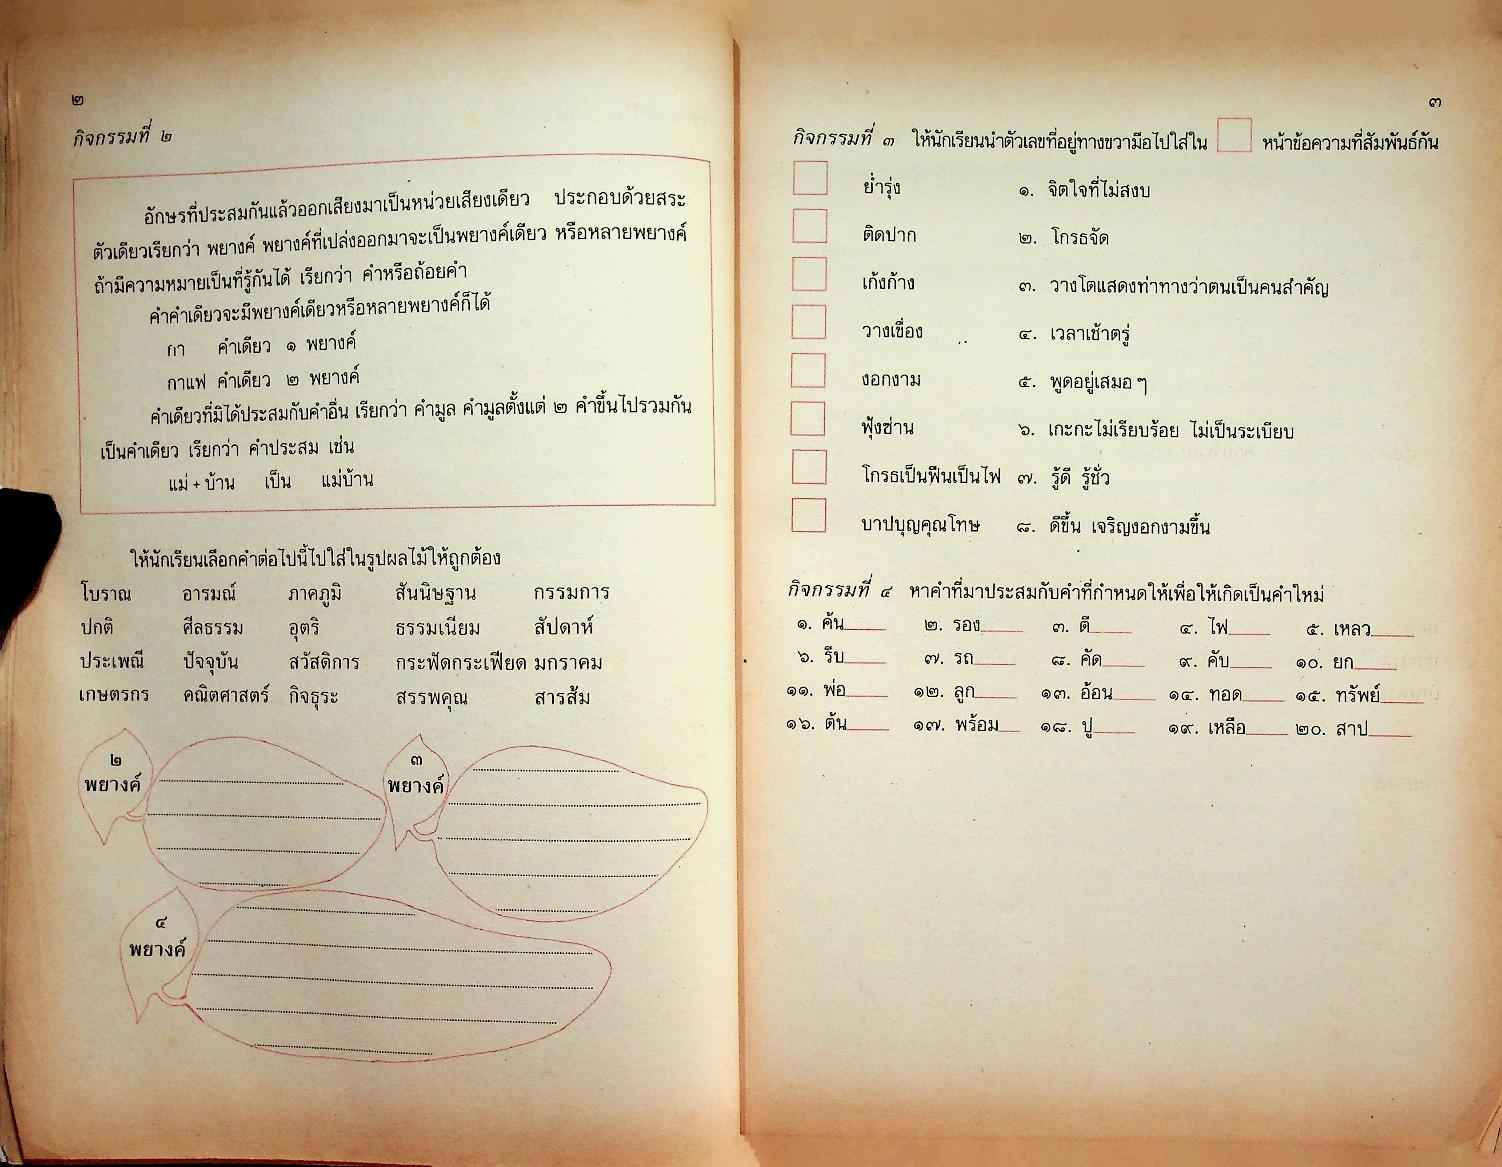 ๒
กิจกรรมที่ ๒
อักษรที่ประสมกันแล้วออกเสียงมาเป็นหน่วยเสียงเดียว ประกอบด้วยสระ
ตัวเดียวเรียกว่า พยางค์ พยางค์ที่เปล่งออกมาจะเป็นพยางค์เดียว หรือหลายพยางค์
ถ้ามีความหมายเป็นที่รู้กันได้ เรียกว่า คำหรือถ้อยคำ
คำคำเดียวจะมีพยางค์เดียวหรือหลายพยางค์ก็ได้
กา คำเดียว ๑ พยางค์
กาแฟ คำเดียว ๒ พยางค์
คำเดียวที่มิได้ประสมกับคำอื่น เรียกว่า คำมูล คำมูลตั้งแต่ ๒ คำขึ้นไปรวมกัน
เป็นคำเดียว เรียกว่า คำประสม เช่น
แม่ + บ้าน เป็น แม่บ้าน
ให้นักเรียนเลือกคำต่อไปนี้ไปใส่ในรูปผลไม้ให้ถูกต้อง
โบราณ อารมณ์ ภาคภูมิ สันนิษฐาน กรรมการ
ปกติ ศีลธรรม อุตริ ธรรมเนียม สัปดาห์
ประเพณี ปัจจุบัน สวัสดิการ กระฟัดกระเฟียด มกราคม
เกษตรกร คณิตศาสตร์ กิจธุระ สรรพคุณ สารส้ม
๒
พยางค์
๓
พยางค์
๔
พยางค์
๓
กิจกรรมที่ ๓ ให้นักเรียนนำตัวเลขที่อยู่ทางขวามือไปใส่ใน หน้าข้อความที่สัมพันธ์กัน
ย่ำรุ่ง ๑. จิตใจที่ไม่สงบ
ติดปาก ๒. โกรธจัด
เก้งก้าง ๓. วางโตแสดงท่าทางว่าตนเป็นคนสำคัญ
วางเขื่อง ๔. เวลาเช้าตรู่
งอกงาม ๕. พูดอยู่เสมอ ๆ
ฟุ้งซ่าน ๖. เกะกะไม่เรียบร้อย ไม่เป็นระเบียบ
โกรธเป็นฟืนเป็นไฟ ๗. รู้ดี รู้ชั่ว
บาปบุญคุณโทษ ๘. ดีขึ้น เจริญงอกงามขึ้น
กิจกรรมที่ ๔ หาคำที่มาประสมกับคำที่กำหนดให้เพื่อให้เกิดเป็นคำใหม่
๑. ค้น ๒. รอง ๓. ตี ๔. ไฟ ๕. เหลว
๖. รีบ ๗. รถ ๘. คัด ๙. คับ ๑๐. ยก
๑๑. พ่อ ๑๒. ลูก ๑๓. อ้อน ๑๔. ทอด ๑๕. ทรัพย์
๑๖. ต้น ๑๗. พร้อม ๑๘. ปู ๑๙. เหลือ ๒๐. สาป